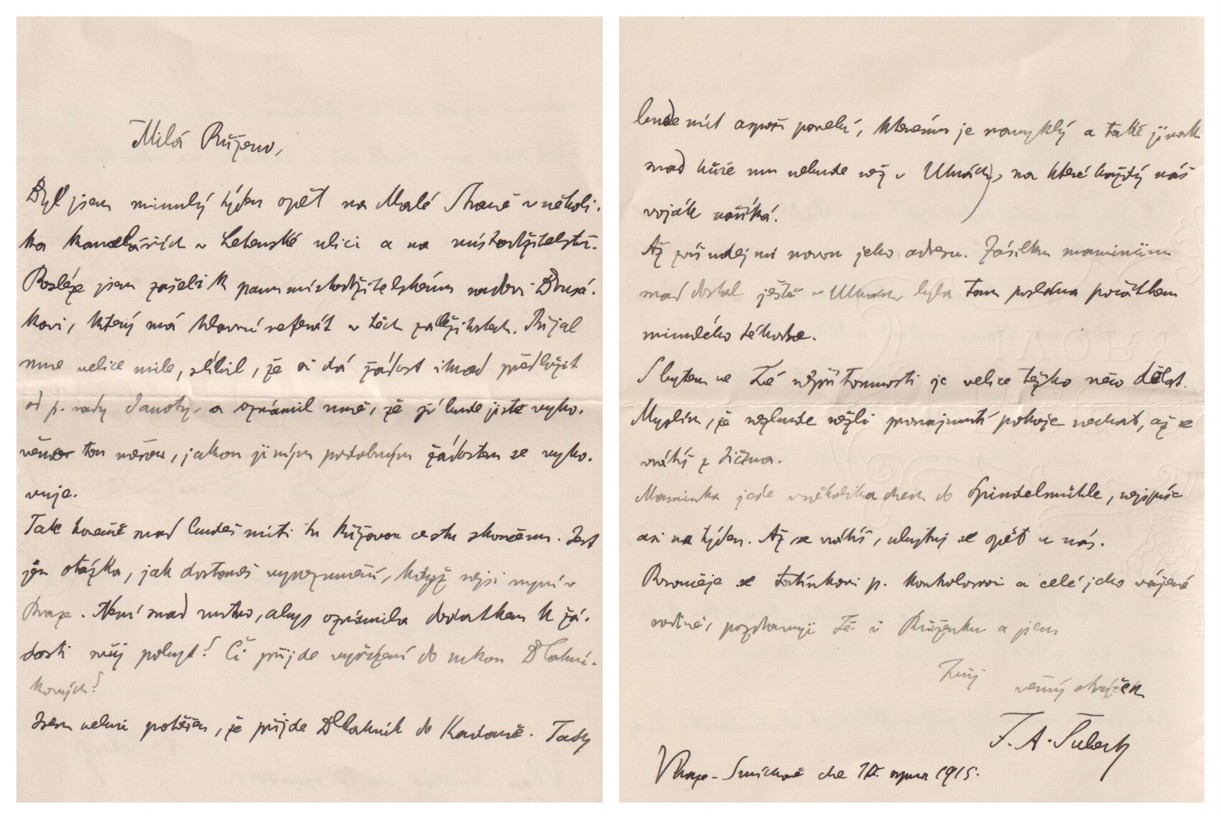 Milá Růženo,
Byl jsem minulý týden opět na Malé Straně v několi-
ka kancelářích v Letenské ulici a na místodržitelství.
Posléze jsem zašel i k panu místodržitelskému radovi
kovi, který má hlavní referát v těch záležitostech. Přijal
mne velice mile, slíbil, že si dá žádost ihned předložit
od p. rady Janoty, a oznámil mně, že již bude jistě vyko-
nán v tom, jakou jiným podobným žádostem se vyho-
vuje.
Tak konečně snad budeš míti tu křížovou cestu skončenu. Jest
jen otázka, jak dostaneš vyrozumění, když nejsi nyní v
Praze. Není snad nutno, abys oznámila dodatkem k žá-
dosti svůj pobyt? Či přijde vyřízení do rukou Dlabači-
kových?
Jsem velmi potěšen, že přijde do Kadaně. Tady
bude mít aspoň ponebí, kterému je navyklý a také jinak
snad hůře mu nebude než v Uhrách, na které každý náš
voják naříká.
Až zvíš udej mi novou jeho adresu. Zásilku maminčinu
snad dostal ještě v Uhrách, byla tam poslána počátkem
minulého téhodne.
S bytem ve Tvé nepřítomnosti je velice těžko něco dělat.
Myslím, že nezbude nežli pronajmutí pokoje nechat, až se
vrátíš z Jičína.
Maminka jede v několika dnech do Spindelmühle, nejspíše
asi na týden. Až se vrátíš, ubytuj se opět u nás.
Poroučeje se tatínkovi p. a celé jeho vážené
rodině, pozdravuji Tě i Růženku a jsem
Tvůj věrný strýček
F. A. Šubert
V Praze-Smíchově dne srpna 1915.